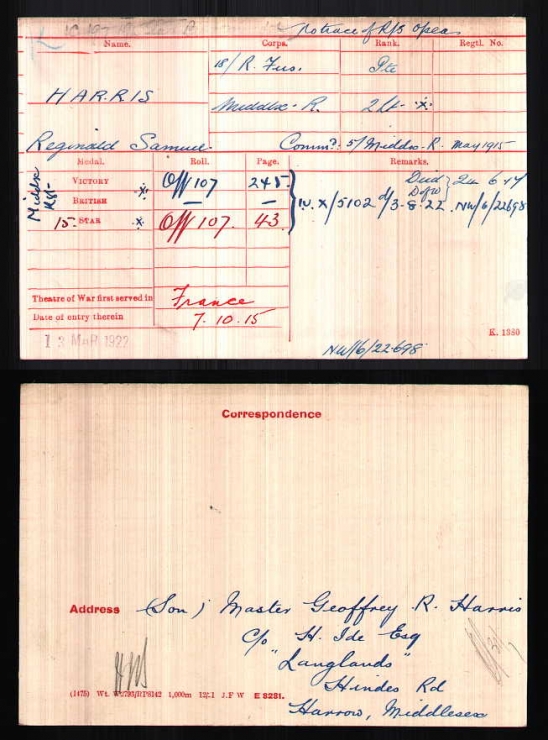 No trace of R/S Opens
Name. Corps. Rank. Regtl. No.
18/R. Fus. Pte
HARRIS Middx. R. 2Lt. X.
Reginald Samuel. Commn: 5/Middx. R. May 1915
Medal. Roll. Page. Remarks.
Middx Rgt-
VICTORY X Off 107 245. Died 2nd 6 17
BRITISH — — DofW IV. X/5102 d/3-8-22. NW/6/22698
15. STAR X. Off 107. 43.
Theatre of War first served in France
Date of entry therein 7.10.15
13 MAR 1922
K. 1380
NW/6/22698
Correspondence
Address (Son) Master Geoffrey R. Harris
c/o H. Ide Esq
"Langlands"
Hindes Rd
Harrow, Middlesex
(1475) Wt. W2793/RP8142 1,000m 12/21 J.F W E 8281.